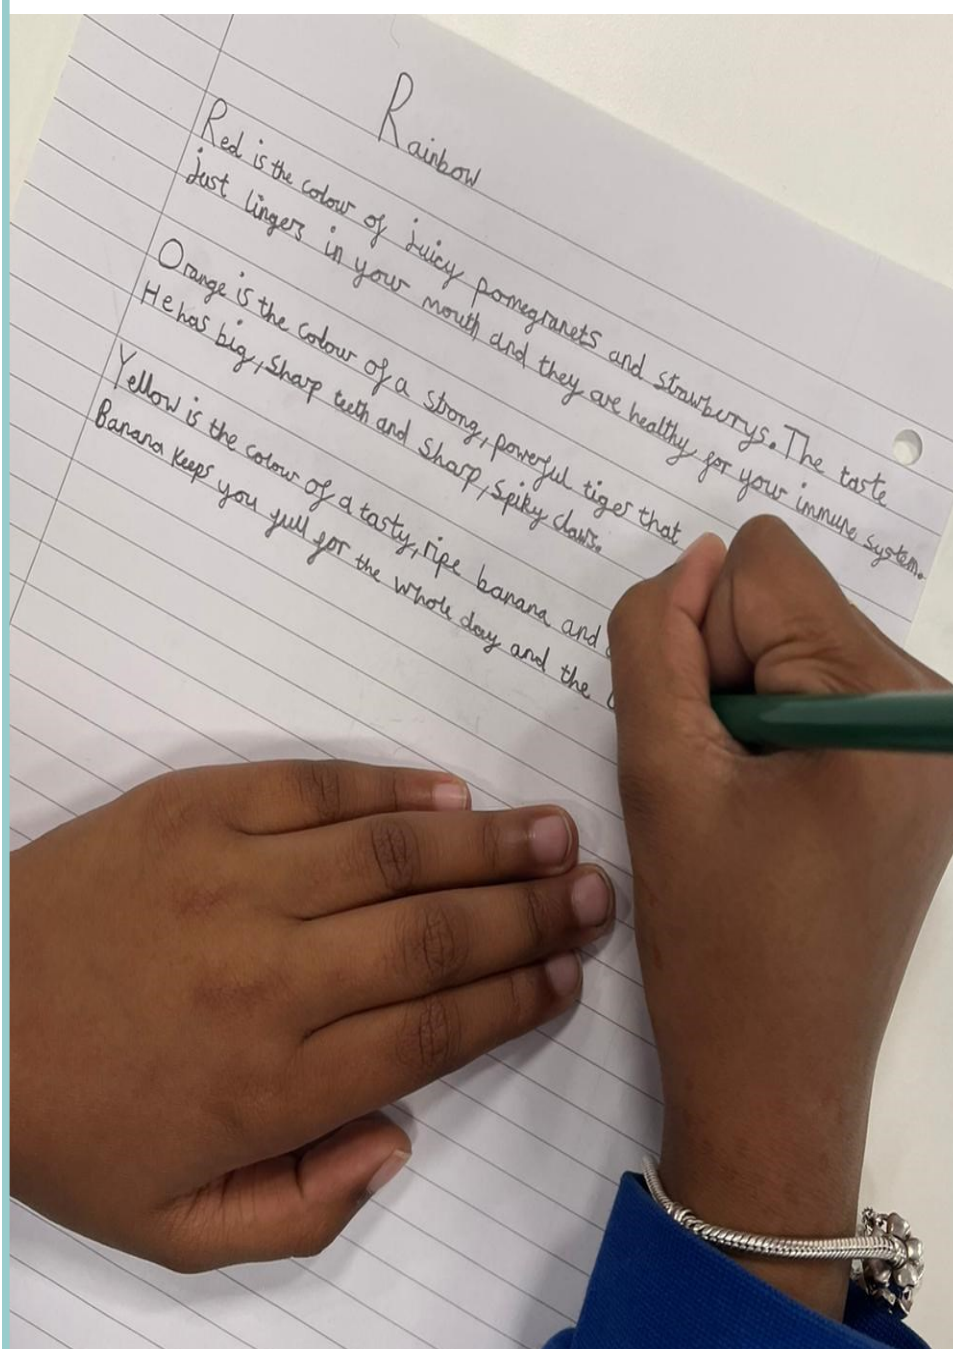 Rainbow
Red is the colour of juicy pomegranets and strawberrys. The taste
just lingers in your mouth and they are healthy for your immune system.
Orange is the colour of a strong, powerful tiger that
He has big, sharp teeth and sharp, spiky claws.
Yellow is the colour of a tasty, ripe banana and
Banana keeps you full for the whole day and the